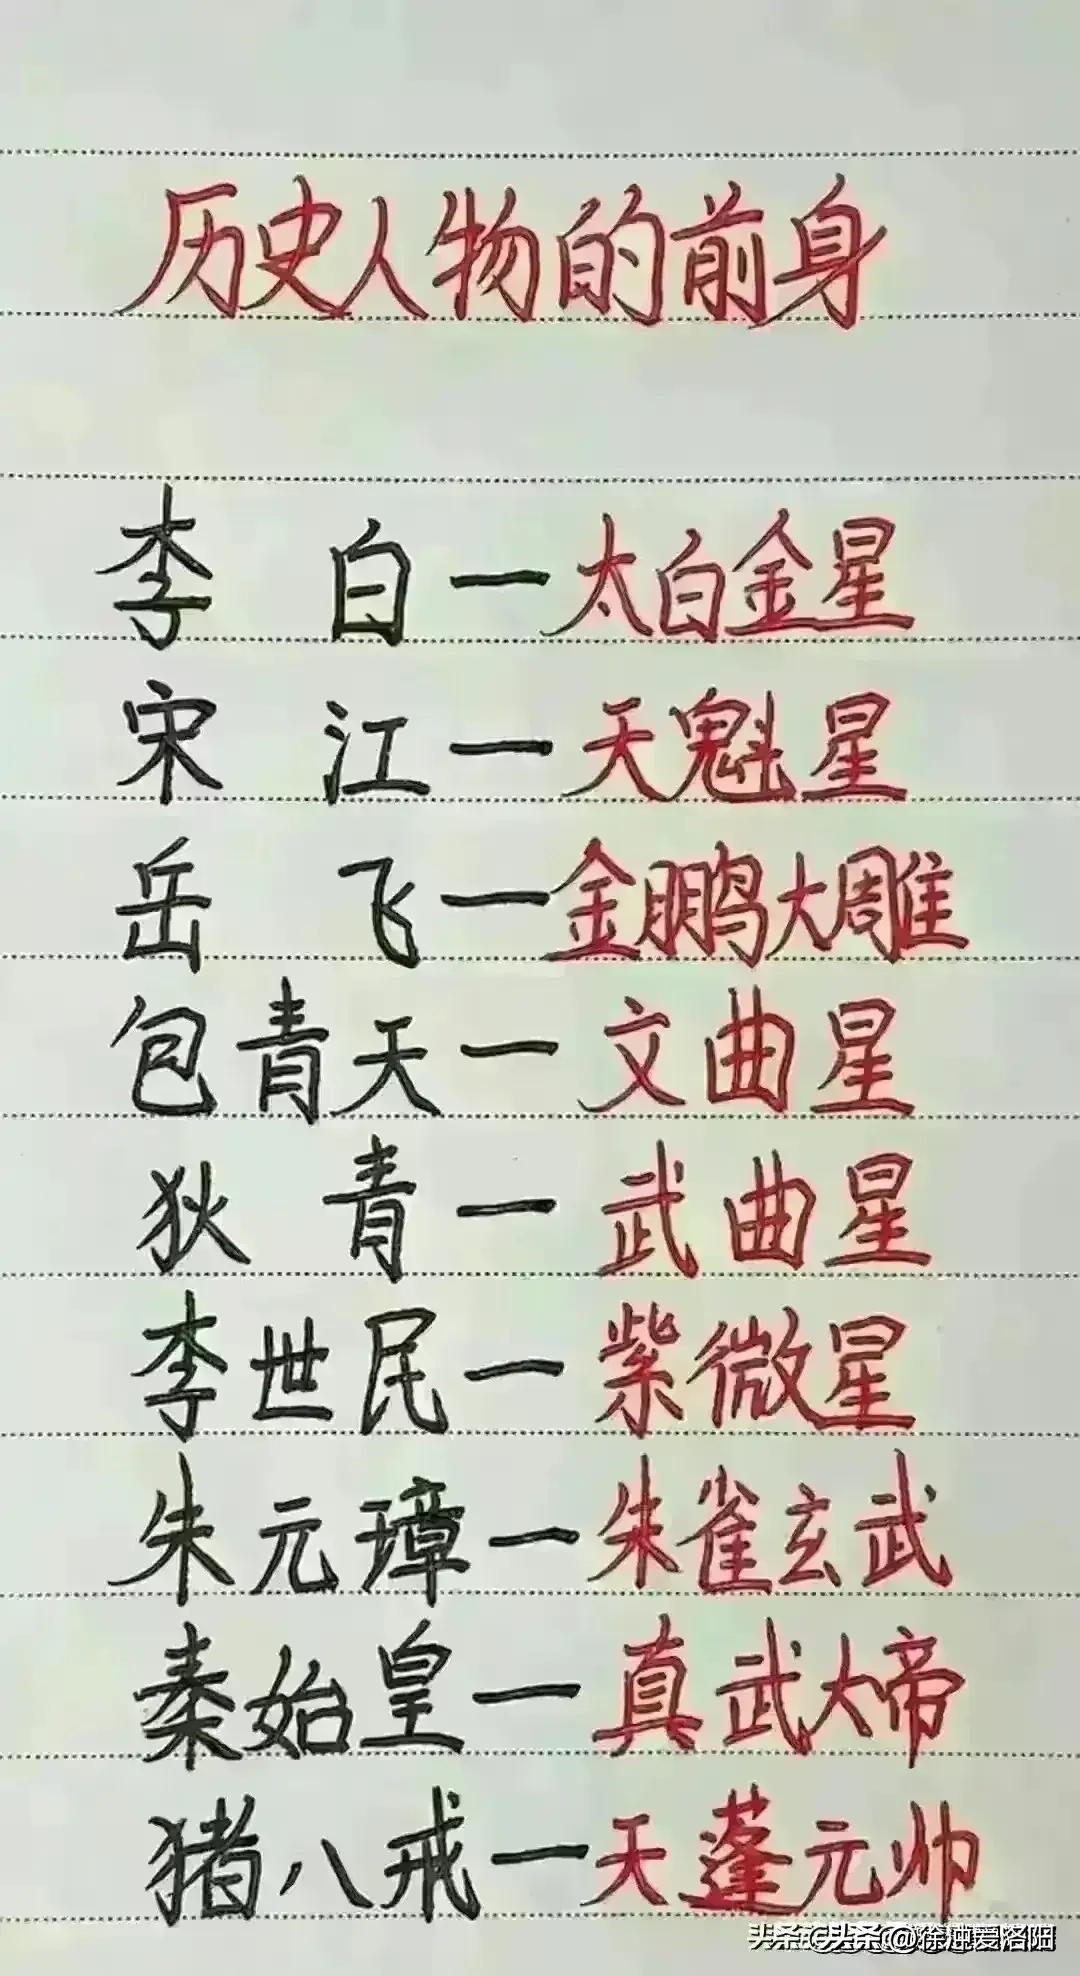 历史人物的前身
李白一太白金星
宋江一天魁星
岳飞一金鹏大雕
包青天一文曲星
狄青一武曲星
李世民一紫微星
朱元璋一朱雀玄武
秦始皇一真武大帝
猪八戒一天蓬元帅
头条 @徐迪爱洛阳